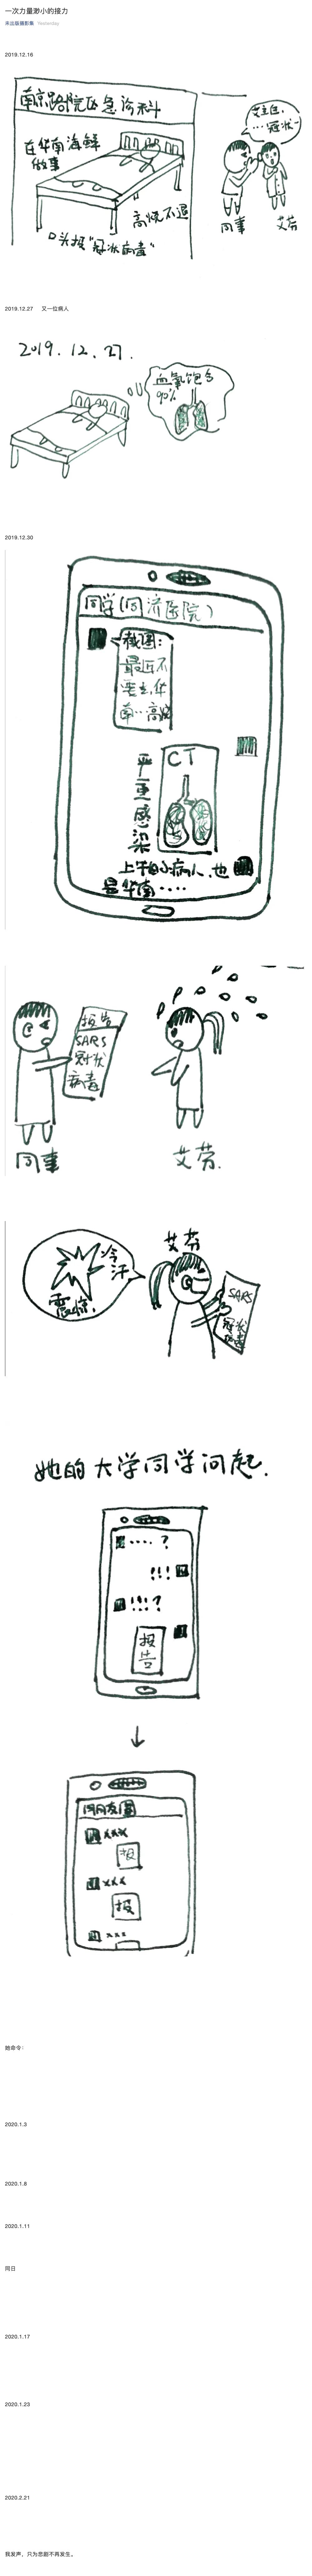 一次力量渺小的接力
未出版摄影集 Yesterday
2019.12.16
南京路院区急诊科
在华南海鲜
做事
高烧不退
口头报“冠状病毒”
艾主任,
…冠状-
同事
艾芬
2019.12.27 又一位病人
2019.12.27.
血氧饱合
90%
2019.12.30
同学(同济医院)
截图:
最近不
要去华
南…高烧
CT
严重感染
上午的病人也
是华南……
报告
SARS
冠状
病毒
同事
艾芬.
艾芬
冷汗
震惊.
SARS
冠状
病毒
她的大学同学问起.
……?
!!!
!!!?
报告
同朋友圈
xxx
报
xxx
报
xxx
她命令:
2020.1.3
2020.1.8
2020.1.11
同日
2020.1.17
2020.1.23
2020.2.21
我发声,只为悲剧不再发生。